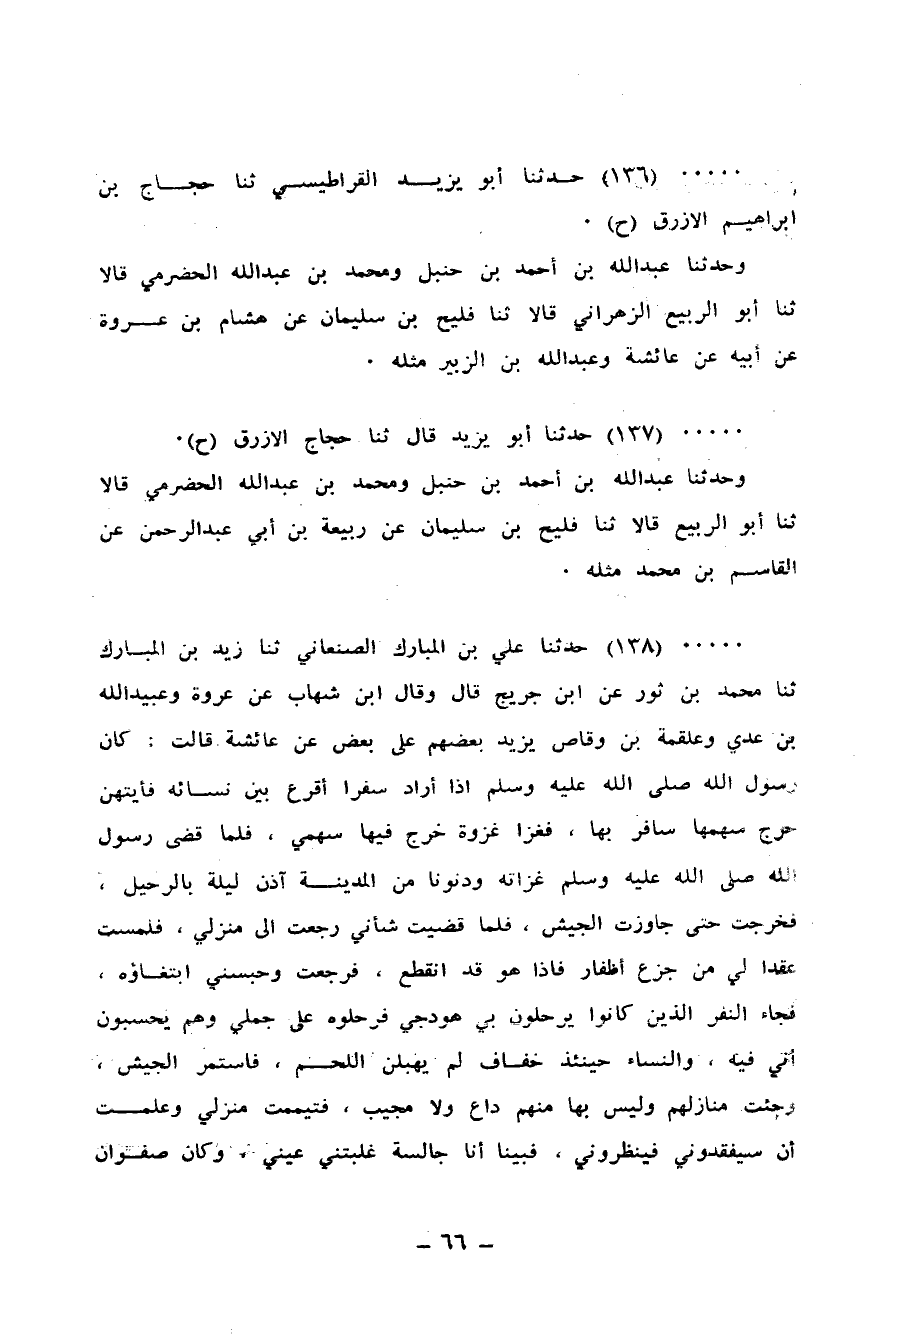 ٠٠٠٠٠ (١٣٦) حـدثنا أبو يزيـــد القراطيســي ثنا حجـــاج بن
ابراهيـم الازرق (ح) ٠
وحدثنا عبدالله بن أحمد بن حنبل ومحمد بن عبدالله الحضرمي قالا
ثنا أبو الربيع الزهراني قالا ثنا فليح بن سليمان عن هشام بن عـــروة
عن أبيه عن عائشة وعبدالله بن الزبير مثله ٠
٠٠٠٠٠ (١٣٧) حدثنا أبو يزيد قال ثنا حجاج الازرق (ح)٠
وحدثنا عبدالله بن أحمد بن حنبل ومحمد بن عبدالله الحضرمي قالا
ثنا أبو الربيع قالا ثنا فليح بن سليمان عن ربيعة بن أبي عبدالرحمن عن
القاســم بن محمد مثله ٠
٠٠٠٠٠ (١٣٨) حدثنا علي بن المبارك الصنعاني ثنا زيد بن المبـارك
ثنا محمد بن ثور عن ابن جريج قال وقال ابن شهاب عن عروة وعبيدالله
بن عدي وعلقمة بن وقاص يزيد بعضهم على بعض عن عائشة قالت : كان
رسول الله صلى الله عليه وسلم اذا أراد سفرا أقرع بين نســائه فأيتهن
خرج سهمها سافر بها ، فغزا غزوة خرج فيها سهمي ، فلما قضى رسول
الله صلى الله عليه وسلم غزاته ودنونا من المدينـــة آذن ليلة بالرحيل ،
فخرجت حتى جاوزت الجيش ، فلما قضيت شأني رجعت الى منزلي ، فلمست
عقدا لي من جزع أظفار فاذا هو قد انقطع ، فرجعت وحبسني ابتغـاؤه ،
فجاء النفر الذين كانوا يرحلون بي هودجي فرحلوه على جملي وهم يحسبون
أني فيه ، والنساء حينئذ خفــاف لم يهبلن اللحــم ، فاستمر الجيش ،
وجئت منازلهم وليس بها منهم داع ولا مجيب ، فتيممت منزلي وعلمــت
أن سيفقدوني فينظروني ، فبينا أنا جالسة غلبتني عيني ، وكان صفـوان
ــ ٦٦ ــ